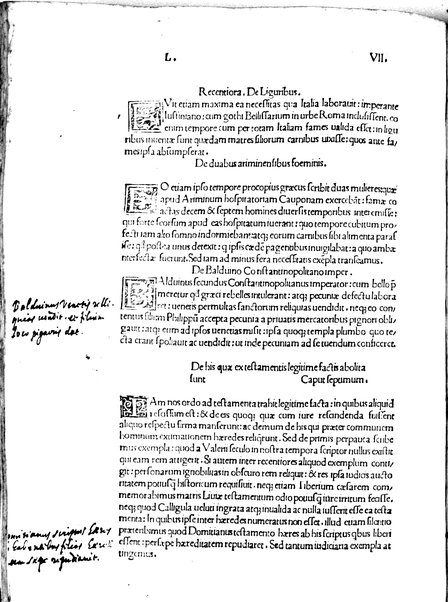 L. VII.
Recentiora. De Liguribus.
FVit etiam maxima ea necessitas qua Italia laborauit: imperante
Iustiniano: cum gothi Bellissarium in urbe Roma inclusissent. eo
enim tempore cum per totam Italiam fames ualida esset: in ligu
ribus inuentæ sunt quædam matres filiorum carnibus uixisse: quos ante fa
mes ipsa absumpserat.
De duabus ariminensibus foeminis.
EO etiam ipso tempore procopius græcus scribit duas mulieres: quæ
apud Ariminum hospitatoriam Cauponam exercebãt: fame co
actas decem & septem homines diuersis temporibus interemisse:
qui forte seorsum apud eas hospitatum iuerant: quo tempore cubitum pro
fecti iam alto somno indormiebant: atq; eorum carnibus sibi alimenta paras
se: qđ postea unus detexit: q ipsis cædē parantibus inuigilabat: a quo ambæ
interfectæ fuerunt. Sed iam ad minus fera necessitatis exēpla transeamus.
De Balduino Constantinopolitano imper.
BAlduinus secundus Constantinopolitanus imperator: cum bello p
meretur qđ græci rebelles intulerant: atq; pecuniæ defectu labora
ret: ueneris permultas sanctorum reliquias uendidit. neq; eo con
tentus filium Philippū accepta pecunia a priuatis mercatoribus pignori obli
gauit: atq; eum ad ipsos uenetias misit: ipsa quoq; templa plumbo quo te
cta erant spoliauit ac uendidit: ut inde pecuniam ad se tuendum conficeret.
Balduinus Venetis relli
quias uendit. et filium
loco pignoris dat.
De his quæ ex testamentis legitime factis abolita
sunt Caput septumum.
IAm nos ordo ad testamenta trahit legitime facta: in quibus aliquid
rescissum est: & de eis quoq; quæ cum iure rescindenda fuissent
aliquo respectu firma manserunt: ac demum de his qui præter communem
hominum existimationem hæredes reliqrunt. Sed de primis perpauca scribe
mus exempla: quod a Valerii seculo in nostra tempora scriptor nullus exstitit
qui eam rem attigerit. Si autem inter recentiores aliquod exemplum conti
git: personarum ignobilitas in obscuro rem reliquit: & res ipsa iudiis aucto
ritatem potiusq historicum requisiuit. neq; etiam Tiberium cæsarem com
memorabimus matris Liuiæ testamentum odio potiusq iure irritum fecisse.
neq; quod Caligula ueluti ingrata atq; inualida ac nulla iussent esse ea testa
menta: In quibus ipse inter hæredes numeratus non esset. illud etiam silentio
præteribimus quod Domitianus testamento hæres ab his scriptus qbus liberi
essent: persæpe hæreditatem repudiaret. Sed tantum iudiciaria exempla at
tingemus.